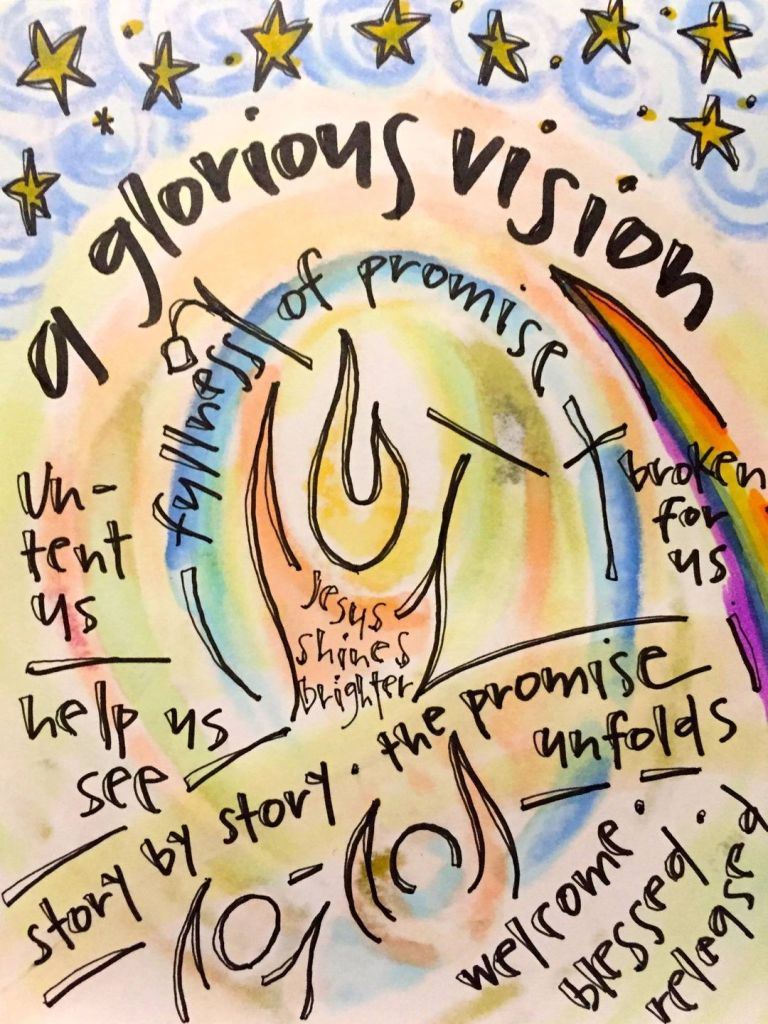 a glorious vision
fullness of promise
broken
for
us
Un-
tent
us
Jesus
shines
brighter
help us
see
story by story. the promise
unfolds
welcome.
blessed.
released